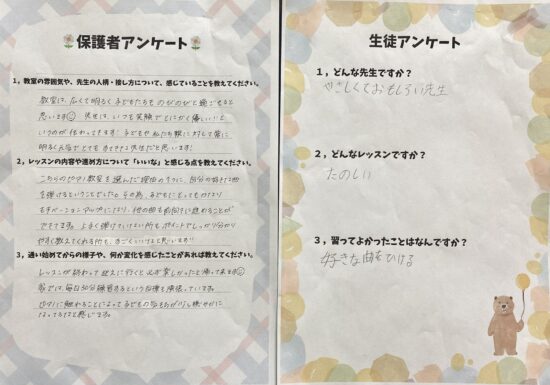 保護者アンケート
1，教室の雰囲気や、先生の人柄・接し方について、感じていることを教えてください。
教室は、広くて明るく子どもたちものびのびと過ごせると
思います 先生は、いつも笑顔でとにかく優しい!!と
いうのが伝わってきます! 子どもや私たち親に対して常に
明るく とてもすてきな先生だと思います!
2，レッスンの内容や進め方について「いいな」と感じる点を教えてください。
こちらのピアノ教室を選んだ理由の1つに、自分の好きな曲
を弾けるということでした。その為、子どもにとってもかなり
モチベーションアップになり、他の曲も前向きに進めることが
できてます。上手く弾けていない所も、ポイントでしっかり分かり
やすく教えてくれる所も、すごくいいなと思います!!
3，通い始めてからの様子や、何か変化を感じたことがあれば教えてください。
レッスンが終わって迎えに行くと必ず楽しかったと帰って来ます
家では、毎日30分練習するという目標も頑張っています。
ピアノに触れることによって子どもの気もちが少し穏やかに
なってるなと感じます。
生徒アンケート
1，どんな先生ですか？
やさしくておもしろい先生
2，どんなレッスンですか？
たのしい
3，習ってよかったことはなんですか？
好きな曲をひける